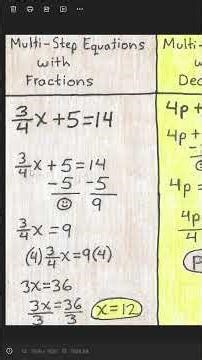 Multi-Step Equations
with
Fractions
3/4x+5=14
3/4x+5=14
-5 -5
9
3/4x=9
(4)3/4x=9(4)
3x=36
3x/3=36/3 x=12
Multi-
4p+
4p+
4p=
4p/4